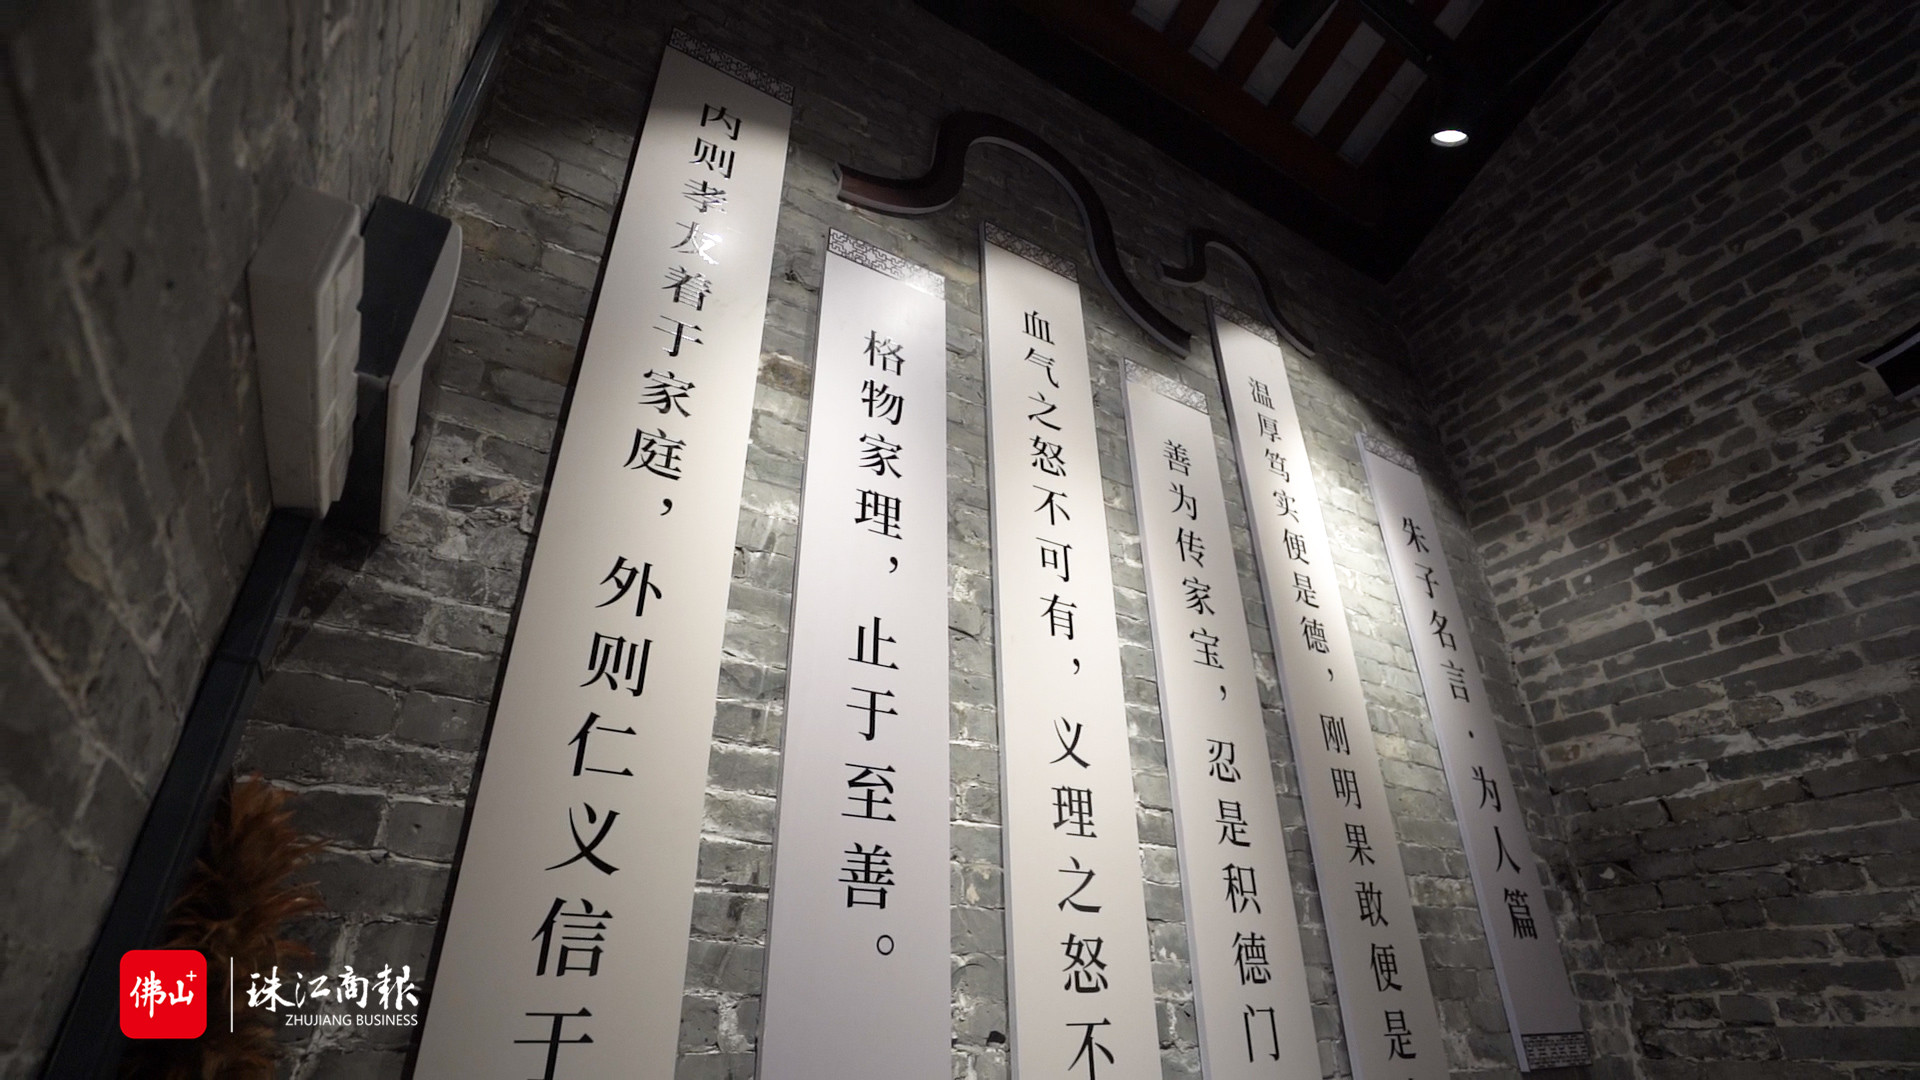 朱子名言·为人篇
温厚笃实便是德，刚明果敢便是
善为传家宝，忍是积德门
血气之怒不可有，义理之怒不
格物家理，止于至善。
内则孝友着于家庭，外则仁义信于
佛山+
珠江商报
ZHUJIANG BUSINESS